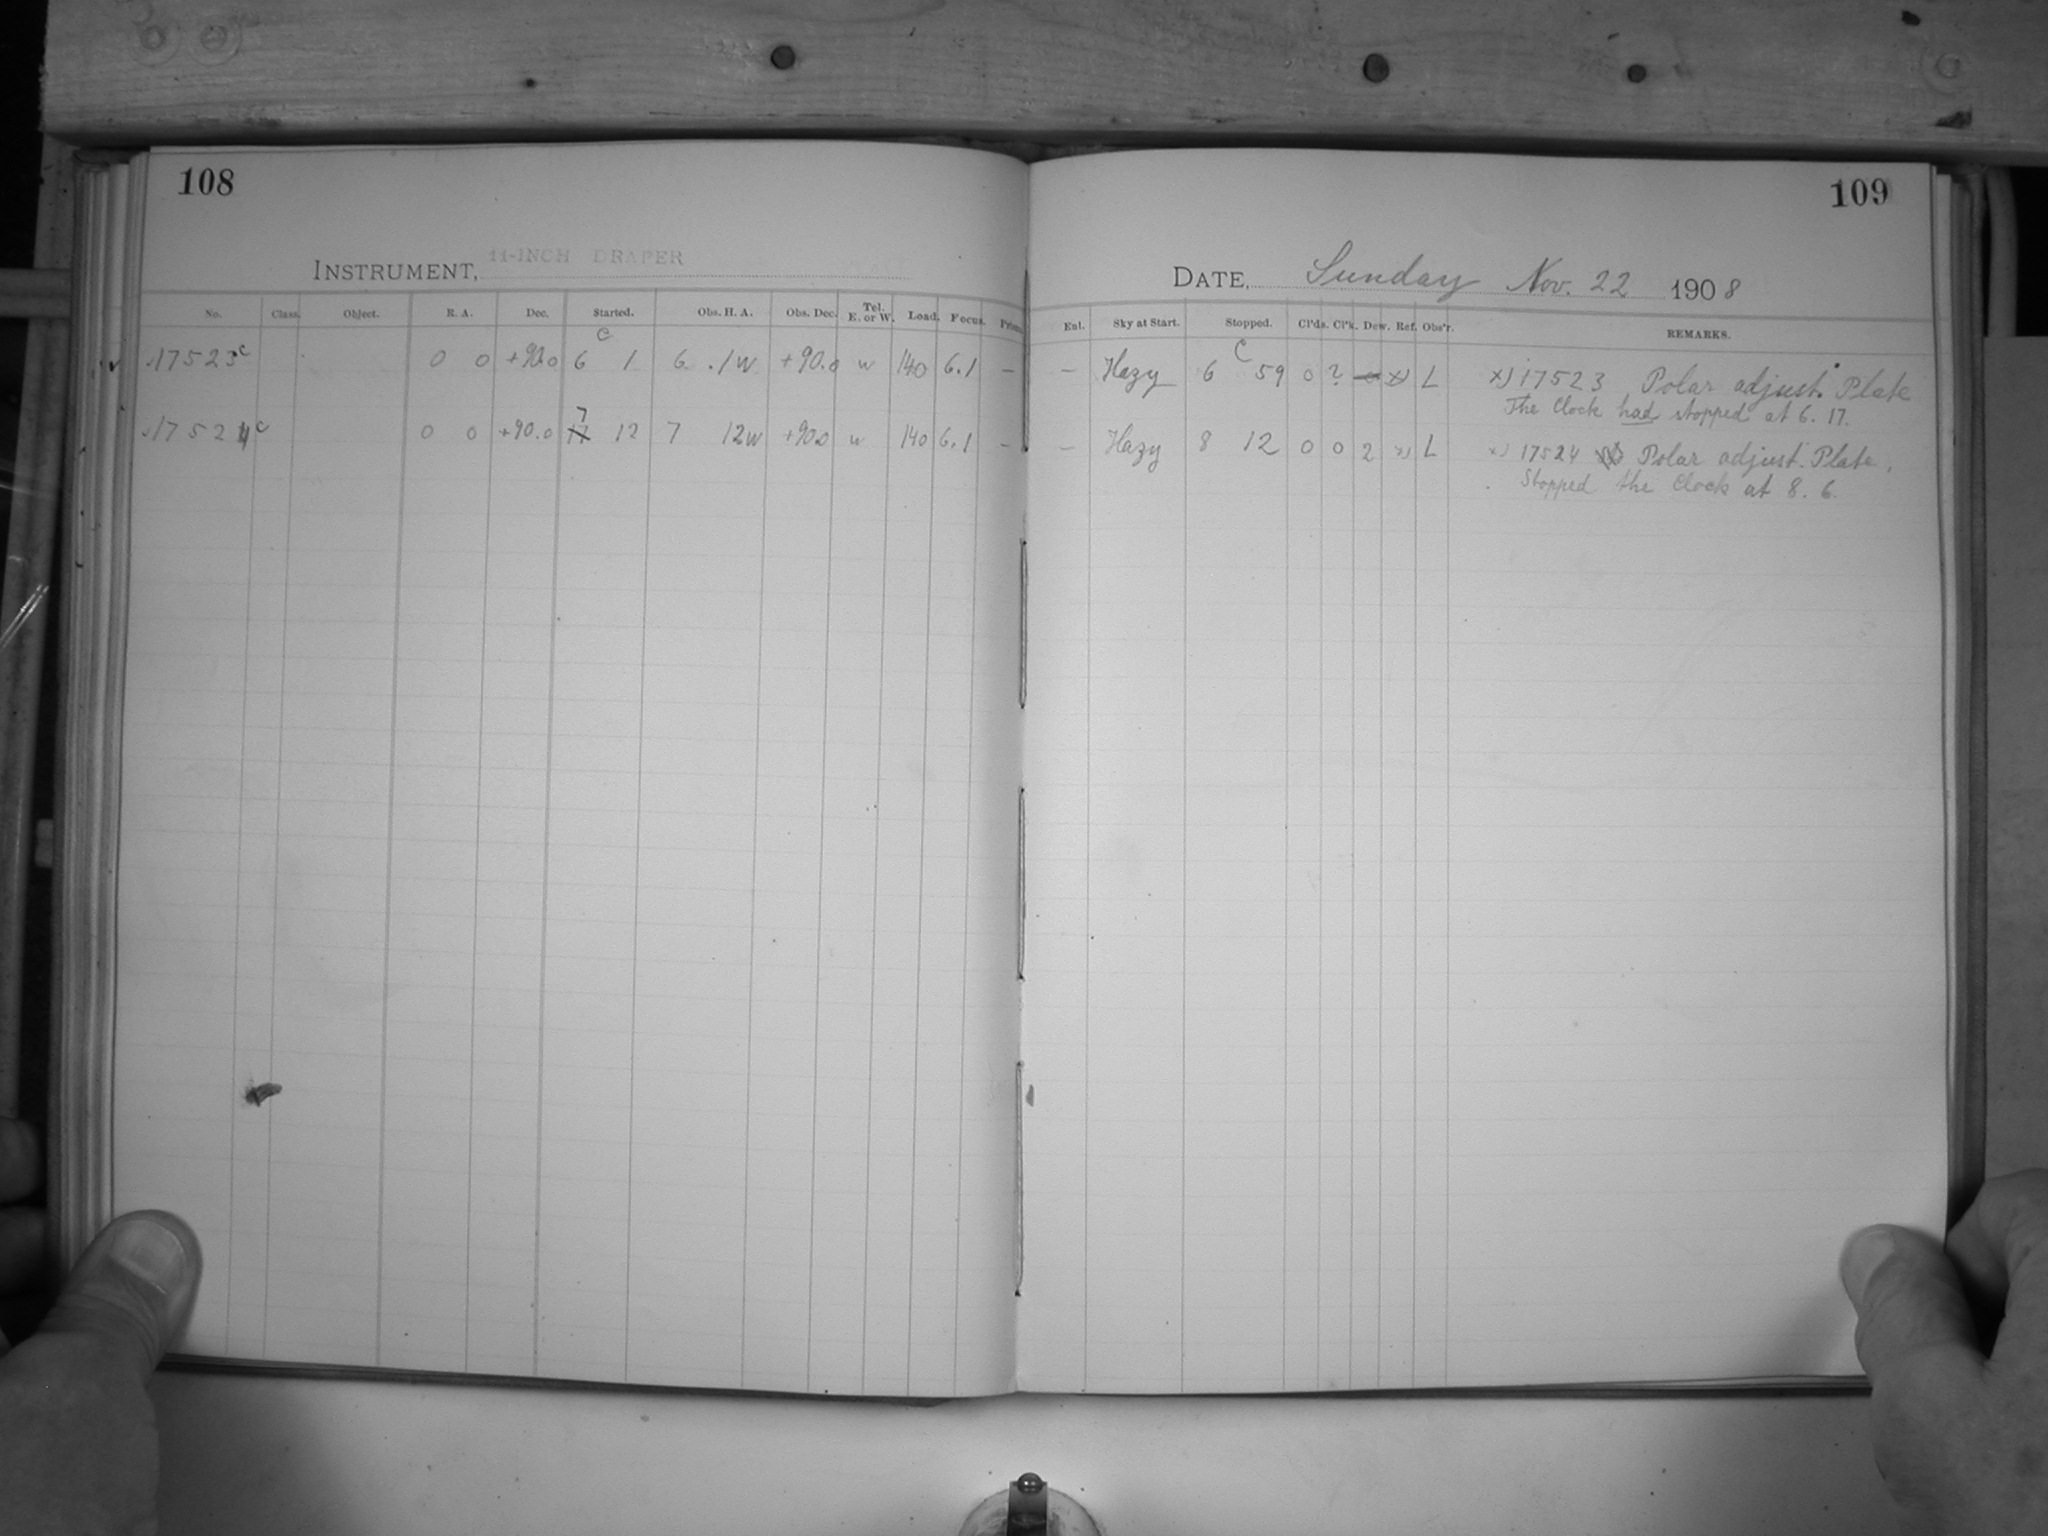 108
INSTRUMENT, 11-INCH DRAPER
No. Class. Object. R. A. Dec. Started. Obs. H. A. Obs. Dec. Tel. E. or W. Load. Focus. Prism
17523c 0 0 +90.0 6 c 1 6 .1w +90.0 w 140 6.1 –
17524c 0 0 +90.0 7 12 7 12w +90.0 w 140 6.1 –
109
DATE, Sunday Nov. 22 1908
Ent. Sky at Start. Stopped. Cl'ds. Cl'k. Dew. Ref. Obs'r. REMARKS.
– Hazy 6 C 59 0 ? x) L x) 17523 Polar adjust. Plate
The Clock had stopped at 6. 17.
– Hazy 8 12 0 0 2 x) L x) 17524 Polar adjust. Plate.
Stopped the Clock at 8. 6.